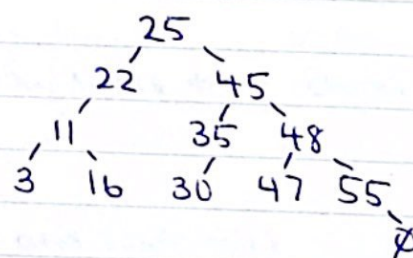 25
22 45
11 35 48
3 16 30 47 55